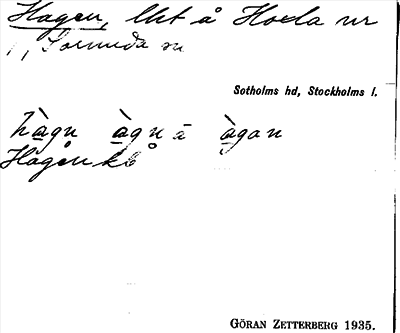 Hagen, lht å Hoxla nr
1, Sorunda sn
Sotholms hd, Stockholms l.
hàgn àgnå àgan
Hagen kb
GÖRAN ZETTERBERG 1935.